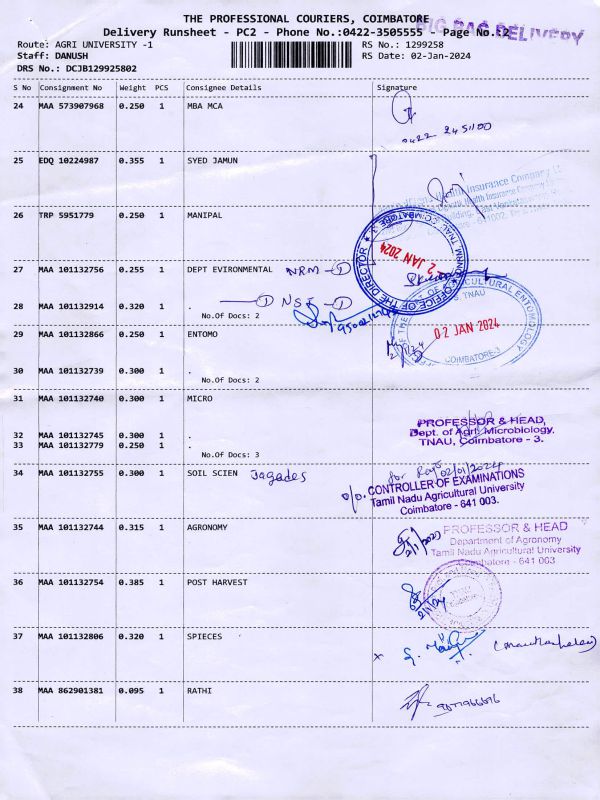 THE PROFESSIONAL COURIERS, COIMBATORE
BIG BAG DELIVERY
Delivery Runsheet - PC2 - Phone No.:0422-3505555 - Page No.:2
Route: AGRI UNIVERSITY -1 RS No.: 1299258
Staff: DANUSH RS Date: 02-Jan-2024
DRS No.: DCJB129925802
S No Consignment No Weight PCS Consignee Details Signature
24 MAA 573907968 0.250 1 MBA MCA
0422 245100
25 EDQ 10224987 0.355 1 SYED JAMUN
Health Insurance Company
26 TRP 5951779 0.250 1 MANIPAL
OFFICE OF THE DIRECTOR
TNAU, COIMBATORE - 3.
2 JAN 2024
27 MAA 101132756 0.255 1 DEPT EVIRONMENTAL NRM - 1
28 MAA 101132914 0.320 1 . 1 NST - 1
No.Of Docs: 2
AGRICULTURAL ENTOMOLOGY
TNAU
02 JAN 2024
COIMBATORE-3
29 MAA 101132866 0.250 1 ENTOMO
30 MAA 101132739 0.300 1 .
No.Of Docs: 2
31 MAA 101132740 0.300 1 MICRO
PROFESSOR & HEAD,
Dept. of Agrl. Microbiology,
TNAU, Coimbatore - 3.
32 MAA 101132745 0.300 1 .
33 MAA 101132779 0.250 1 .
No.Of Docs: 3
34 MAA 101132755 0.300 1 SOIL SCIEN Jagades
for 02/01/2024
o/o. CONTROLLER OF EXAMINATIONS
Tamil Nadu Agricultural University
Coimbatore - 641 003.
35 MAA 101132744 0.315 1 AGRONOMY
PROFESSOR & HEAD
Department of Agronomy
Tamil Nadu Agricultural University
Coimbatore - 641 003
36 MAA 101132754 0.385 1 POST HARVEST
37 MAA 101132806 0.320 1 SPIECES
x
38 MAA 862901381 0.095 1 RATHI